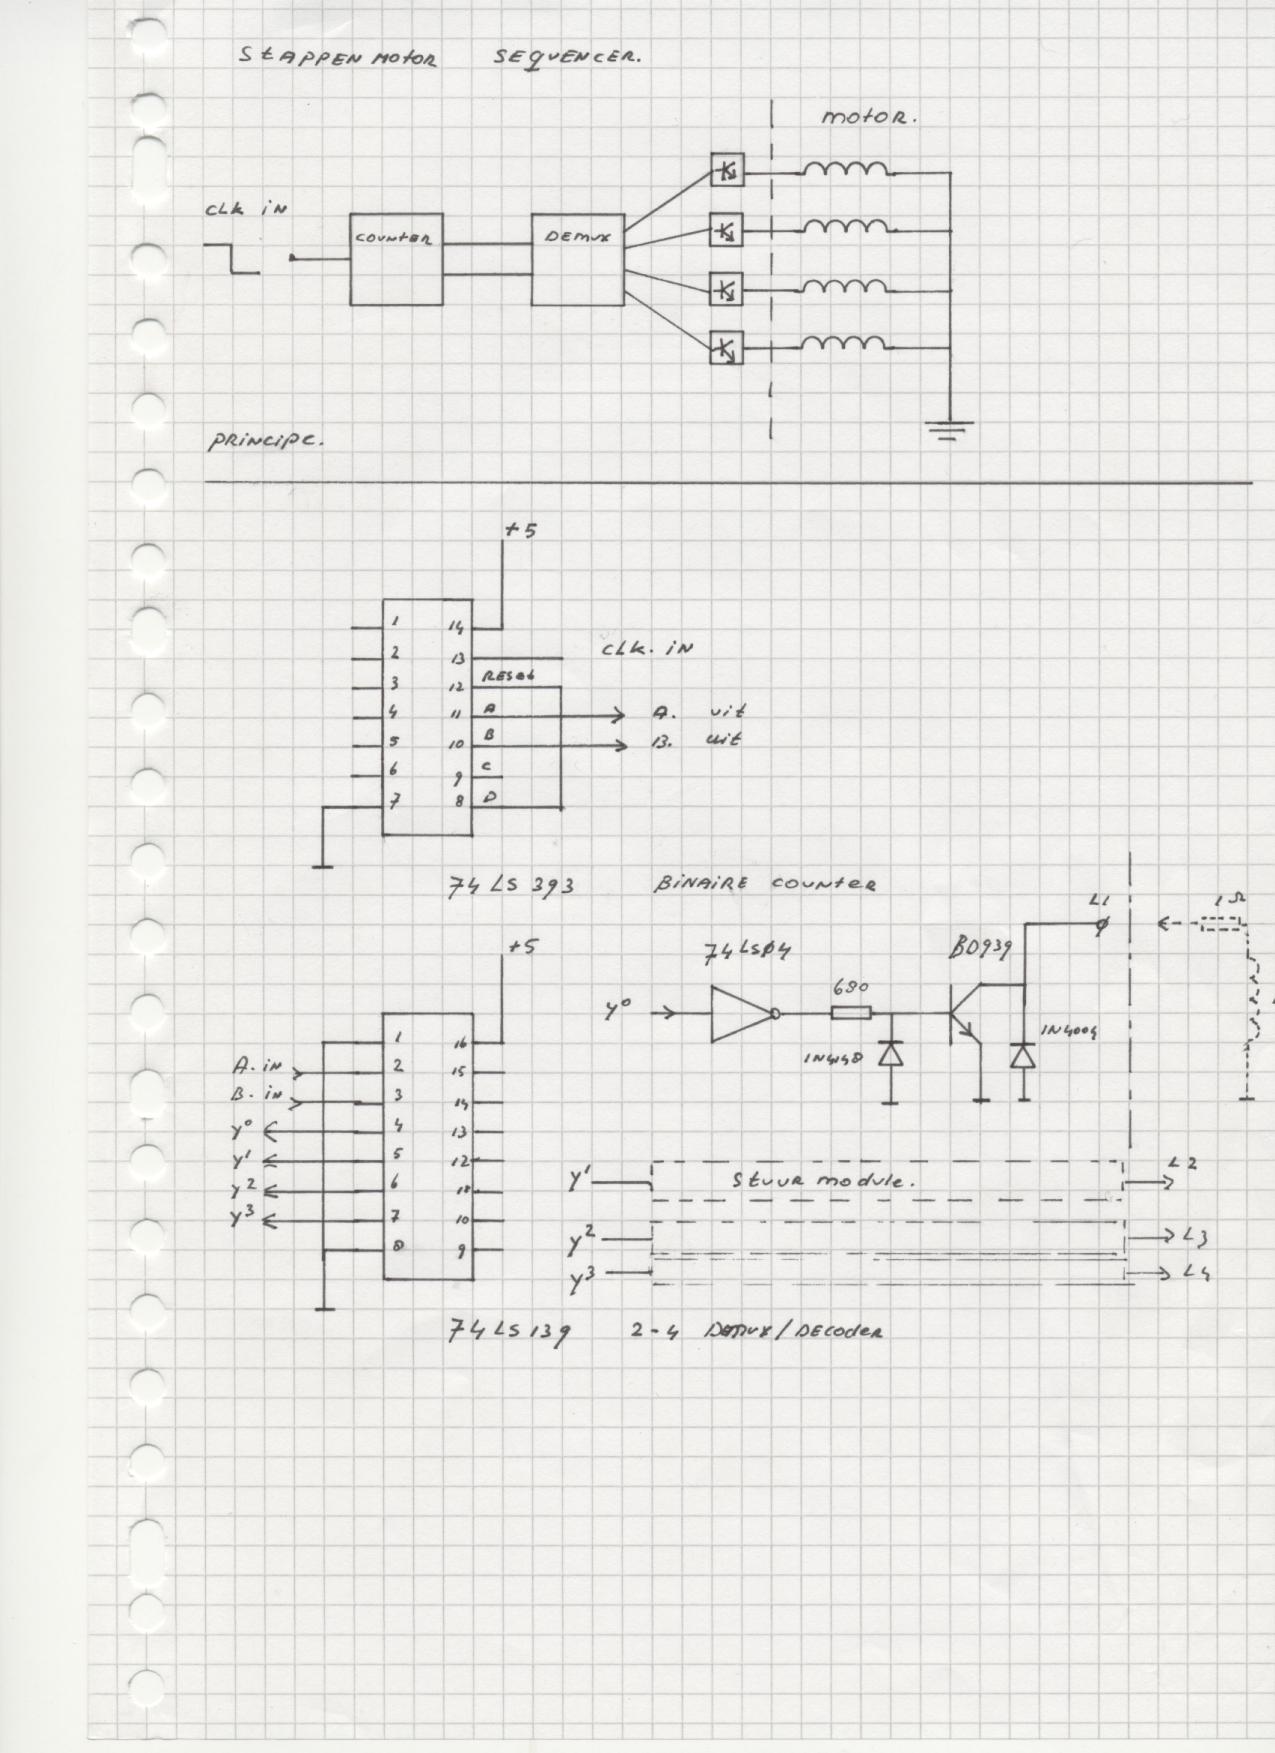 StAPPEN MOtOR SEQUENCER.
motor.
CLK IN
COUNTER
DEMUX
PRINCIPE.
+5
1 14
CLK. IN
2 13
RESET
3 12
4 11 A A. uit
5 10 B B. uit
6 9 C
7 8 D
74 LS 393 BINAIRE COUNTER
L1 1Ω
+5
74LS04 BD939
680
Y0
1N4148 1N4004
1 16
A. in 2 15
B. in 3 14
Y0 4 13
Y1 5 12
Y2 6 11
Y3 7 10
8 9
Y1 Stuur module. L2
Y2 L3
Y3 L4
74 LS 139 2-4 DEMUX/DECODER